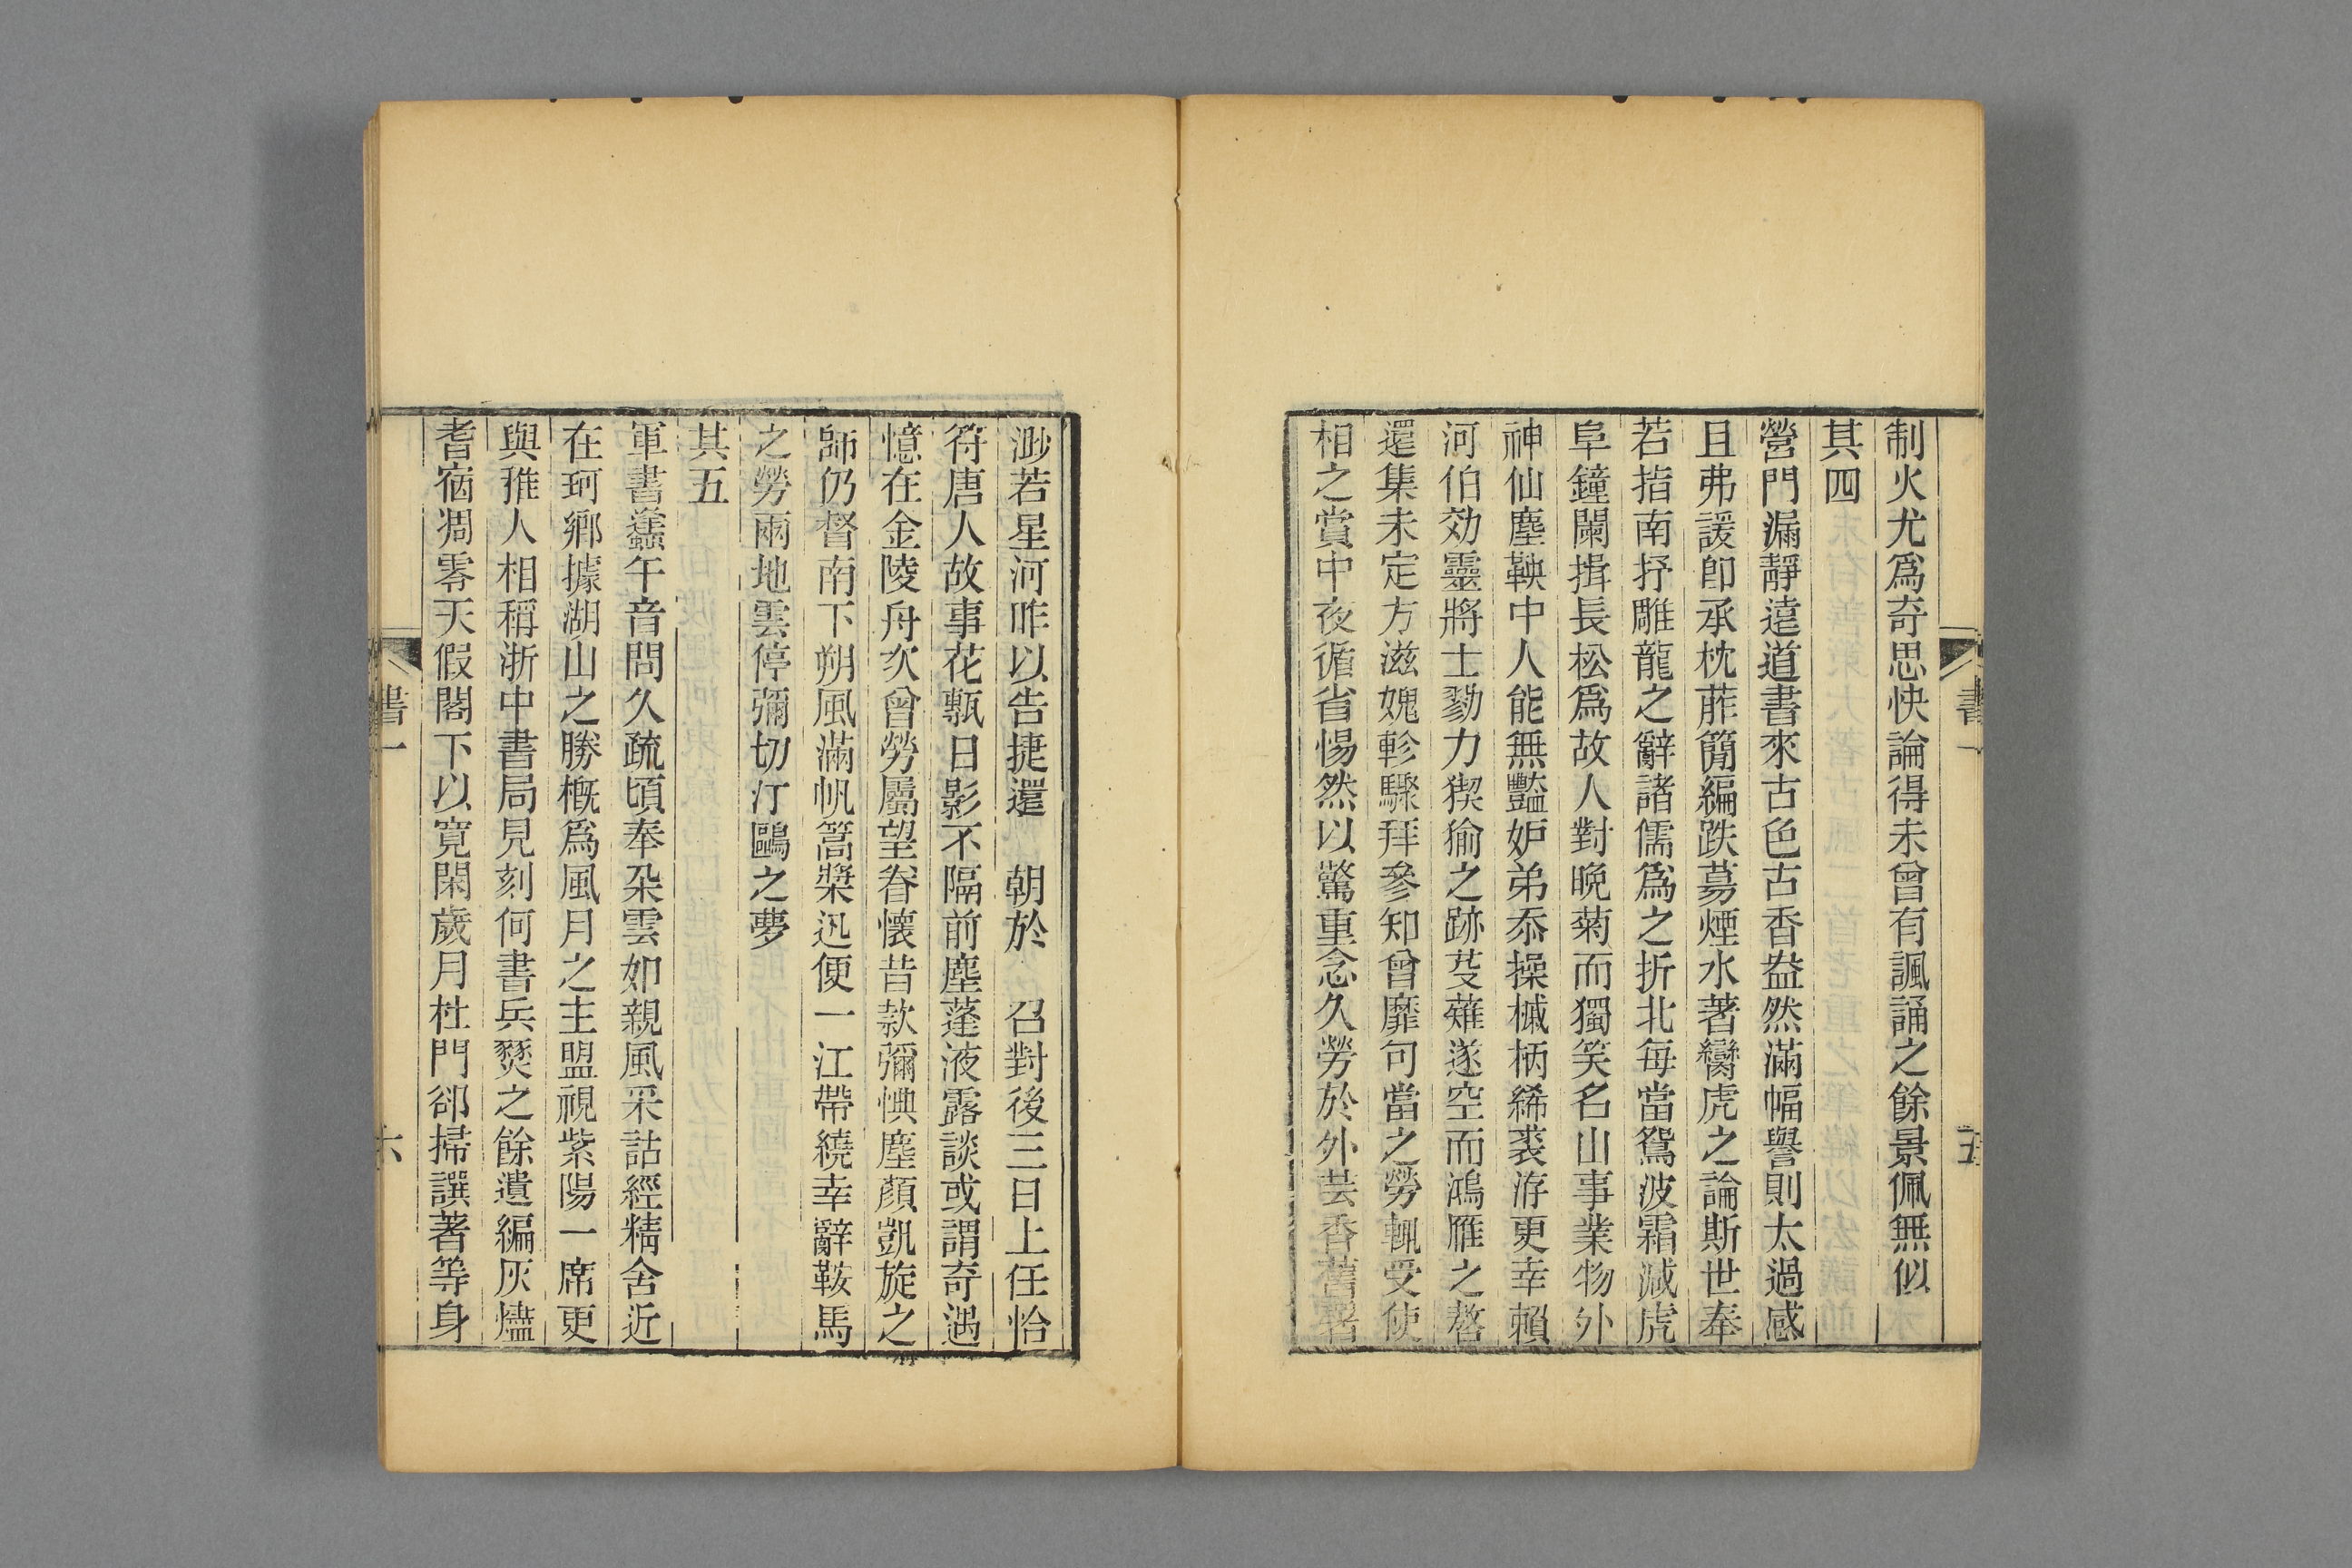 制火尤爲奇思快論得未曾有諷誦之餘景佩無似
其四
營門漏靜遠道書來古色古香盎然滿幅譽則太過感
且弗諼卽承枕葄簡編跌蕩煙水著臠虎之論斯世奉
若指南抒雕龍之辭諸儒爲之折北每當鴛波霜減虎
阜鐘闌揖長松爲故人對晩菊而獨笑名山事業物外
神仙塵鞅中人能無豔妒弟忝操椷柄綈裘洊更幸賴
河伯効靈將士勠力猰貐之跡芟薙遂空而鴻雁之嗸
還集未定方滋媿軫驟拜參知曾靡句當之勞輒受使
相之賞中夜循省惕然以驚重念久勞於外芸香舊署
渺若星河昨以告捷還 朝於 召對後三日上任恰
符唐人故事花甎日影不隔前塵蓬液露談或謂奇遇
憶在金陵舟次曾勞屬望眷懷昔款彌愧塵顏凱旋之
師仍督南下朔風滿帆篙槳迅便一江帶繞幸辭鞍馬
之勞兩地雲停彌切汀鷗之夢
其五
軍書蠭午音問久疏頃奉朶雲如親風采詁經精舍近
在珂鄉據湖山之勝槪爲風月之主盟視紫陽一席更
與雅人相稱浙中書局見刻何書兵燹之餘遺編灰燼
耆宿凋零天假閣下以寬閑歲月杜門郤掃譔著等身
書一
五
書一
六